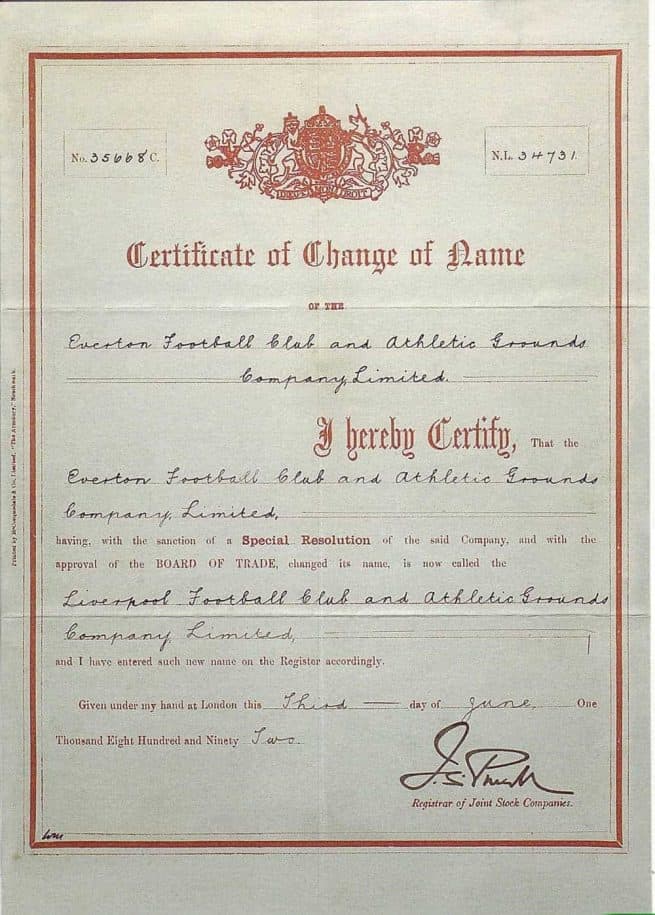 No. 35668 C.
N.L. 34731.
DIEU ET MON DROIT
Certificate of Change of Name
OF THE
Everton Football Club and Athletic Grounds
Company, Limited.
I hereby Certify, That the
Everton Football Club and Athletic Grounds
Company, Limited,
having, with the sanction of a Special Resolution of the said Company, and with the
approval of the BOARD OF TRADE, changed its name, is now called the
Liverpool Football Club and Athletic Grounds
Company, Limited,
and I have entered such new name on the Register accordingly.
Given under my hand at London this Third day of June, One
Thousand Eight Hundred and Ninety Two.
Registrar of Joint Stock Companies.